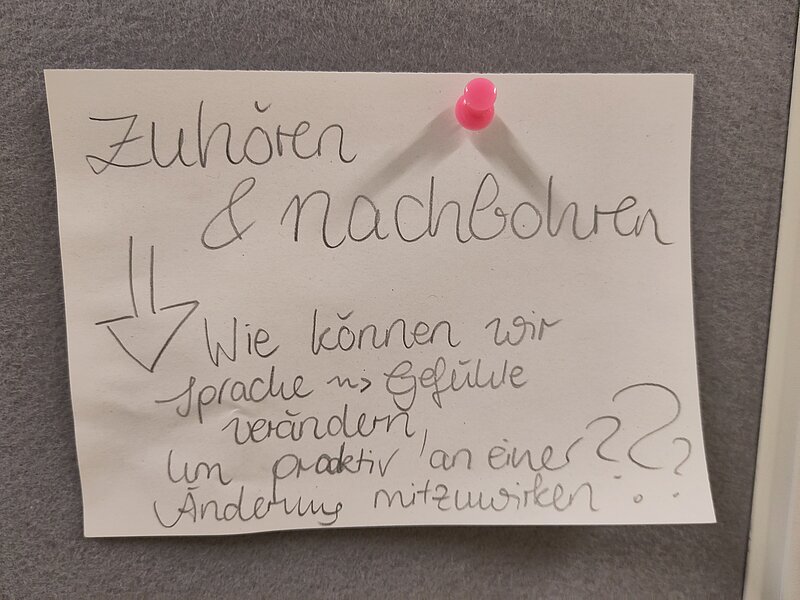 Zuhören
& nachbohren
Wie können wir
Sprache ~> Gefühle
verändern,
um proaktiv an einer
Änderung mitzuwirken???